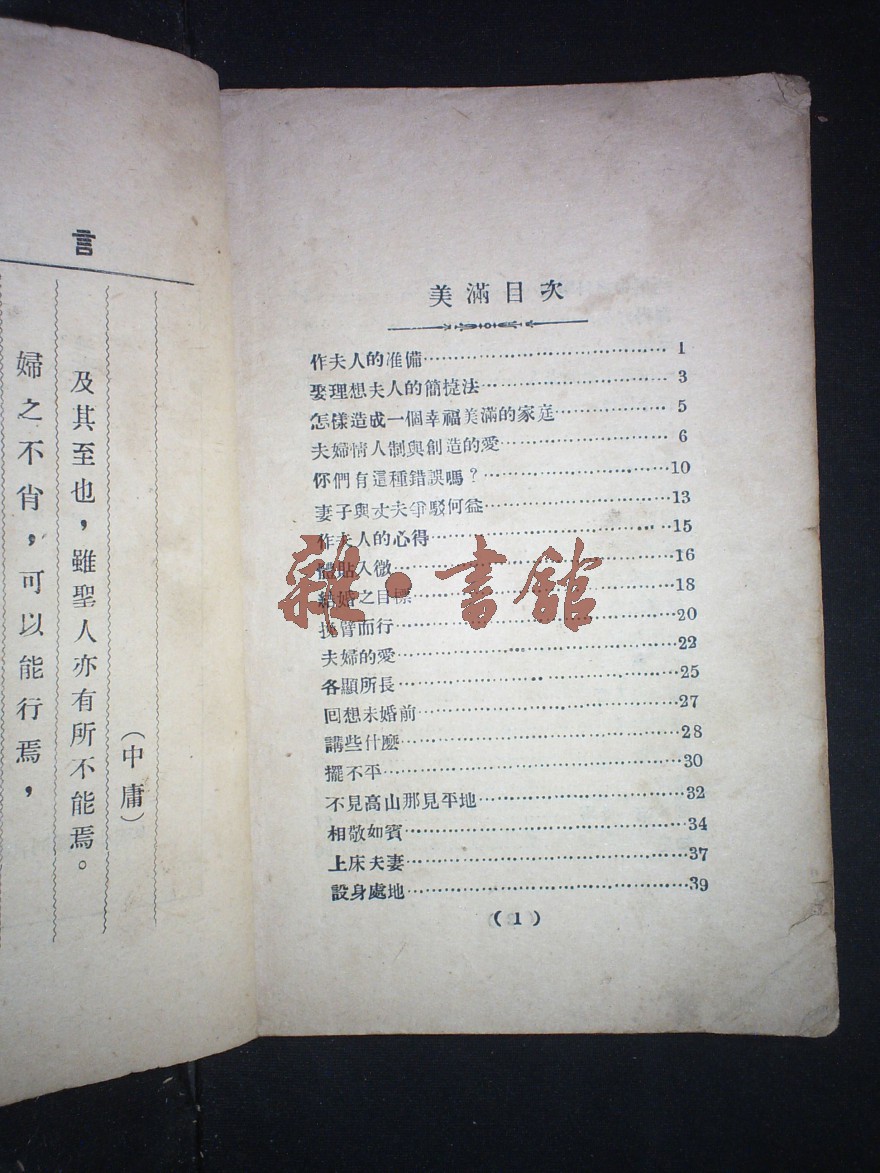 言
婦之不肖，可以能行焉，
及其至也，雖聖人亦有所不能焉。
（中庸）
美滿目次
作夫人的准備…………………………1
娶理想夫人的簡捷法…………………3
怎樣造成一個幸福美滿的家庭…………5
夫婦情人制與創造的愛…………………6
你們有這種錯誤嗎？……………………10
妻子與丈夫爭駁何益……………………13
作夫人的心得……………………………15
體貼入微…………………………………16
結婚之目標………………………………18
挽臂而行…………………………………20
夫婦的愛…………………………………22
各顯所長…………………………………25
回想未婚前………………………………27
講些什麼…………………………………28
擺不平……………………………………30
不見高山那見平地………………………32
相敬如賓…………………………………34
上床夫妻…………………………………37
設身處地…………………………………39
（1）
雜·書館